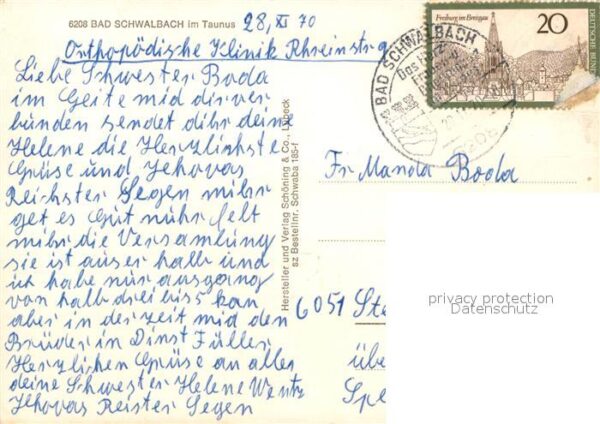 6208 BAD SCHWALBACH im Taunus
28, XI 70
Orthopödische Klinik Rheinstr 9
Liebe Schwester Boda
im Geite mid dir ver
bünden sendet dihr deine
Helene die Herzlichste
Grüse und Jehovas
Reichster Segen mihr
get es Gut nuhr felt
mihr die Versamlung
sie ist auser halb und
ich habe nur ausgang
von halb drei bis 5 kan
aber in der zeit mid den
Brüder in Dinst Füller
Herzlichen Grüse an alles
deine Schwester Helene Wentz
Jehovas Reister Segen
Hersteller und Verlag Schöning & Co., Lübeck
sz Bestellnr. Schwaba 185-f
BAD SCHWALBACH
6208
Freiburg im Breisgau
20
DEUTSCHE BUNDES
Fr Manda Boda
6051 Ste
übe
Spe
privacy protection
Datenschutz